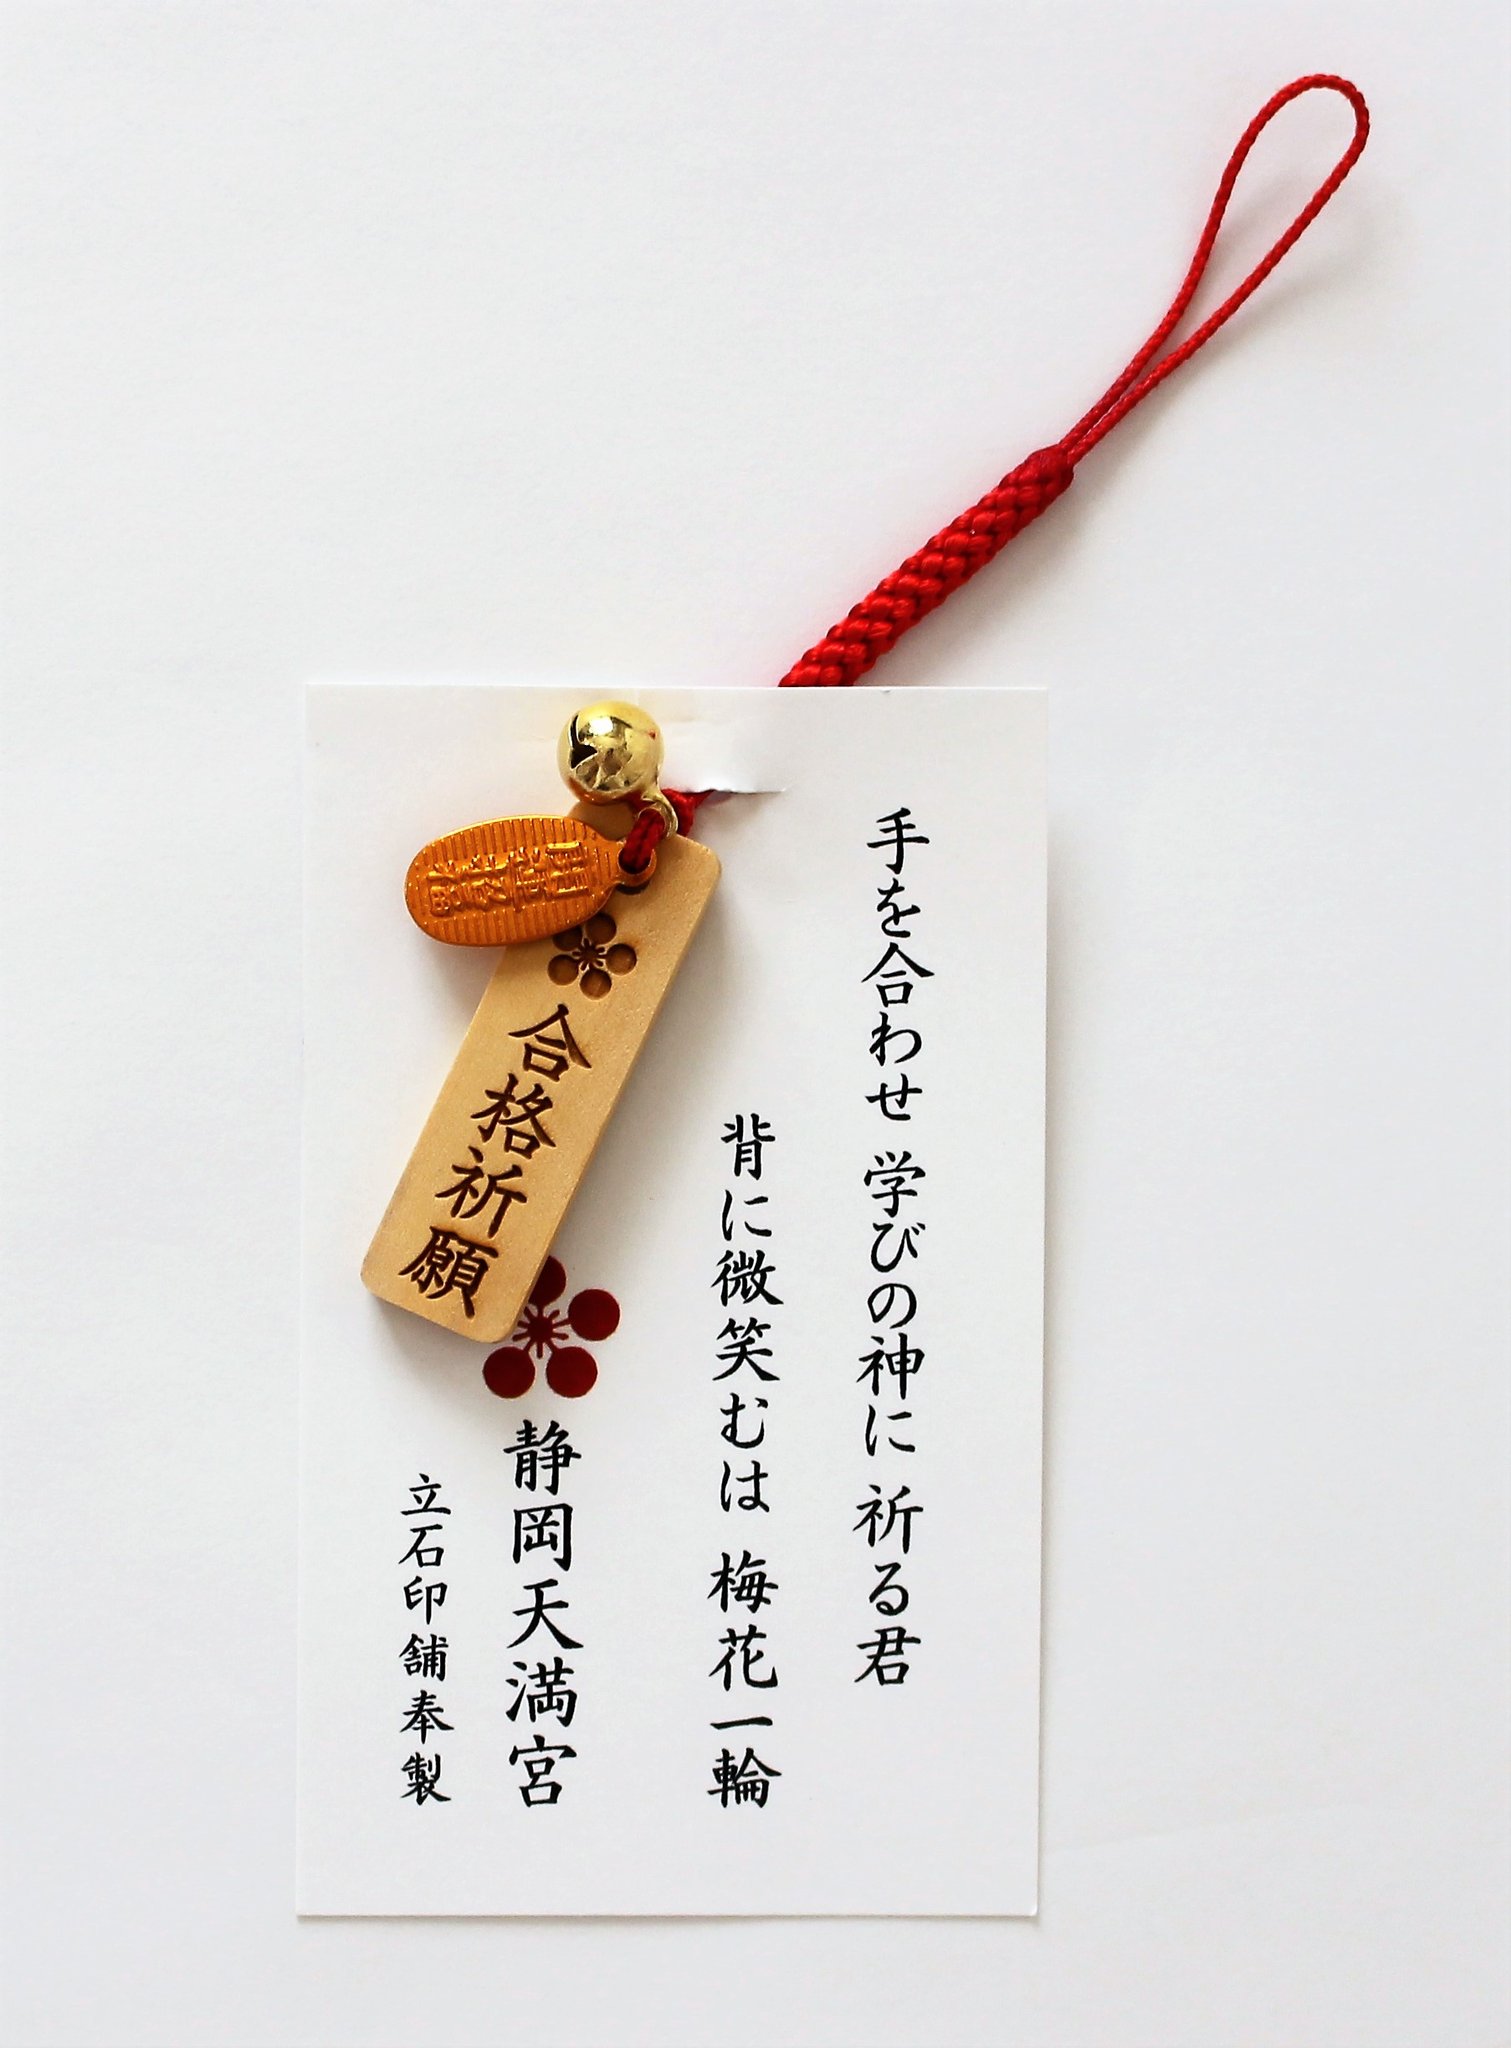 手を合わせ 学びの神に 祈る君
背に微笑むは 梅花一輪
静岡天満宮
立石印舗奉製
合格祈願
開運招福